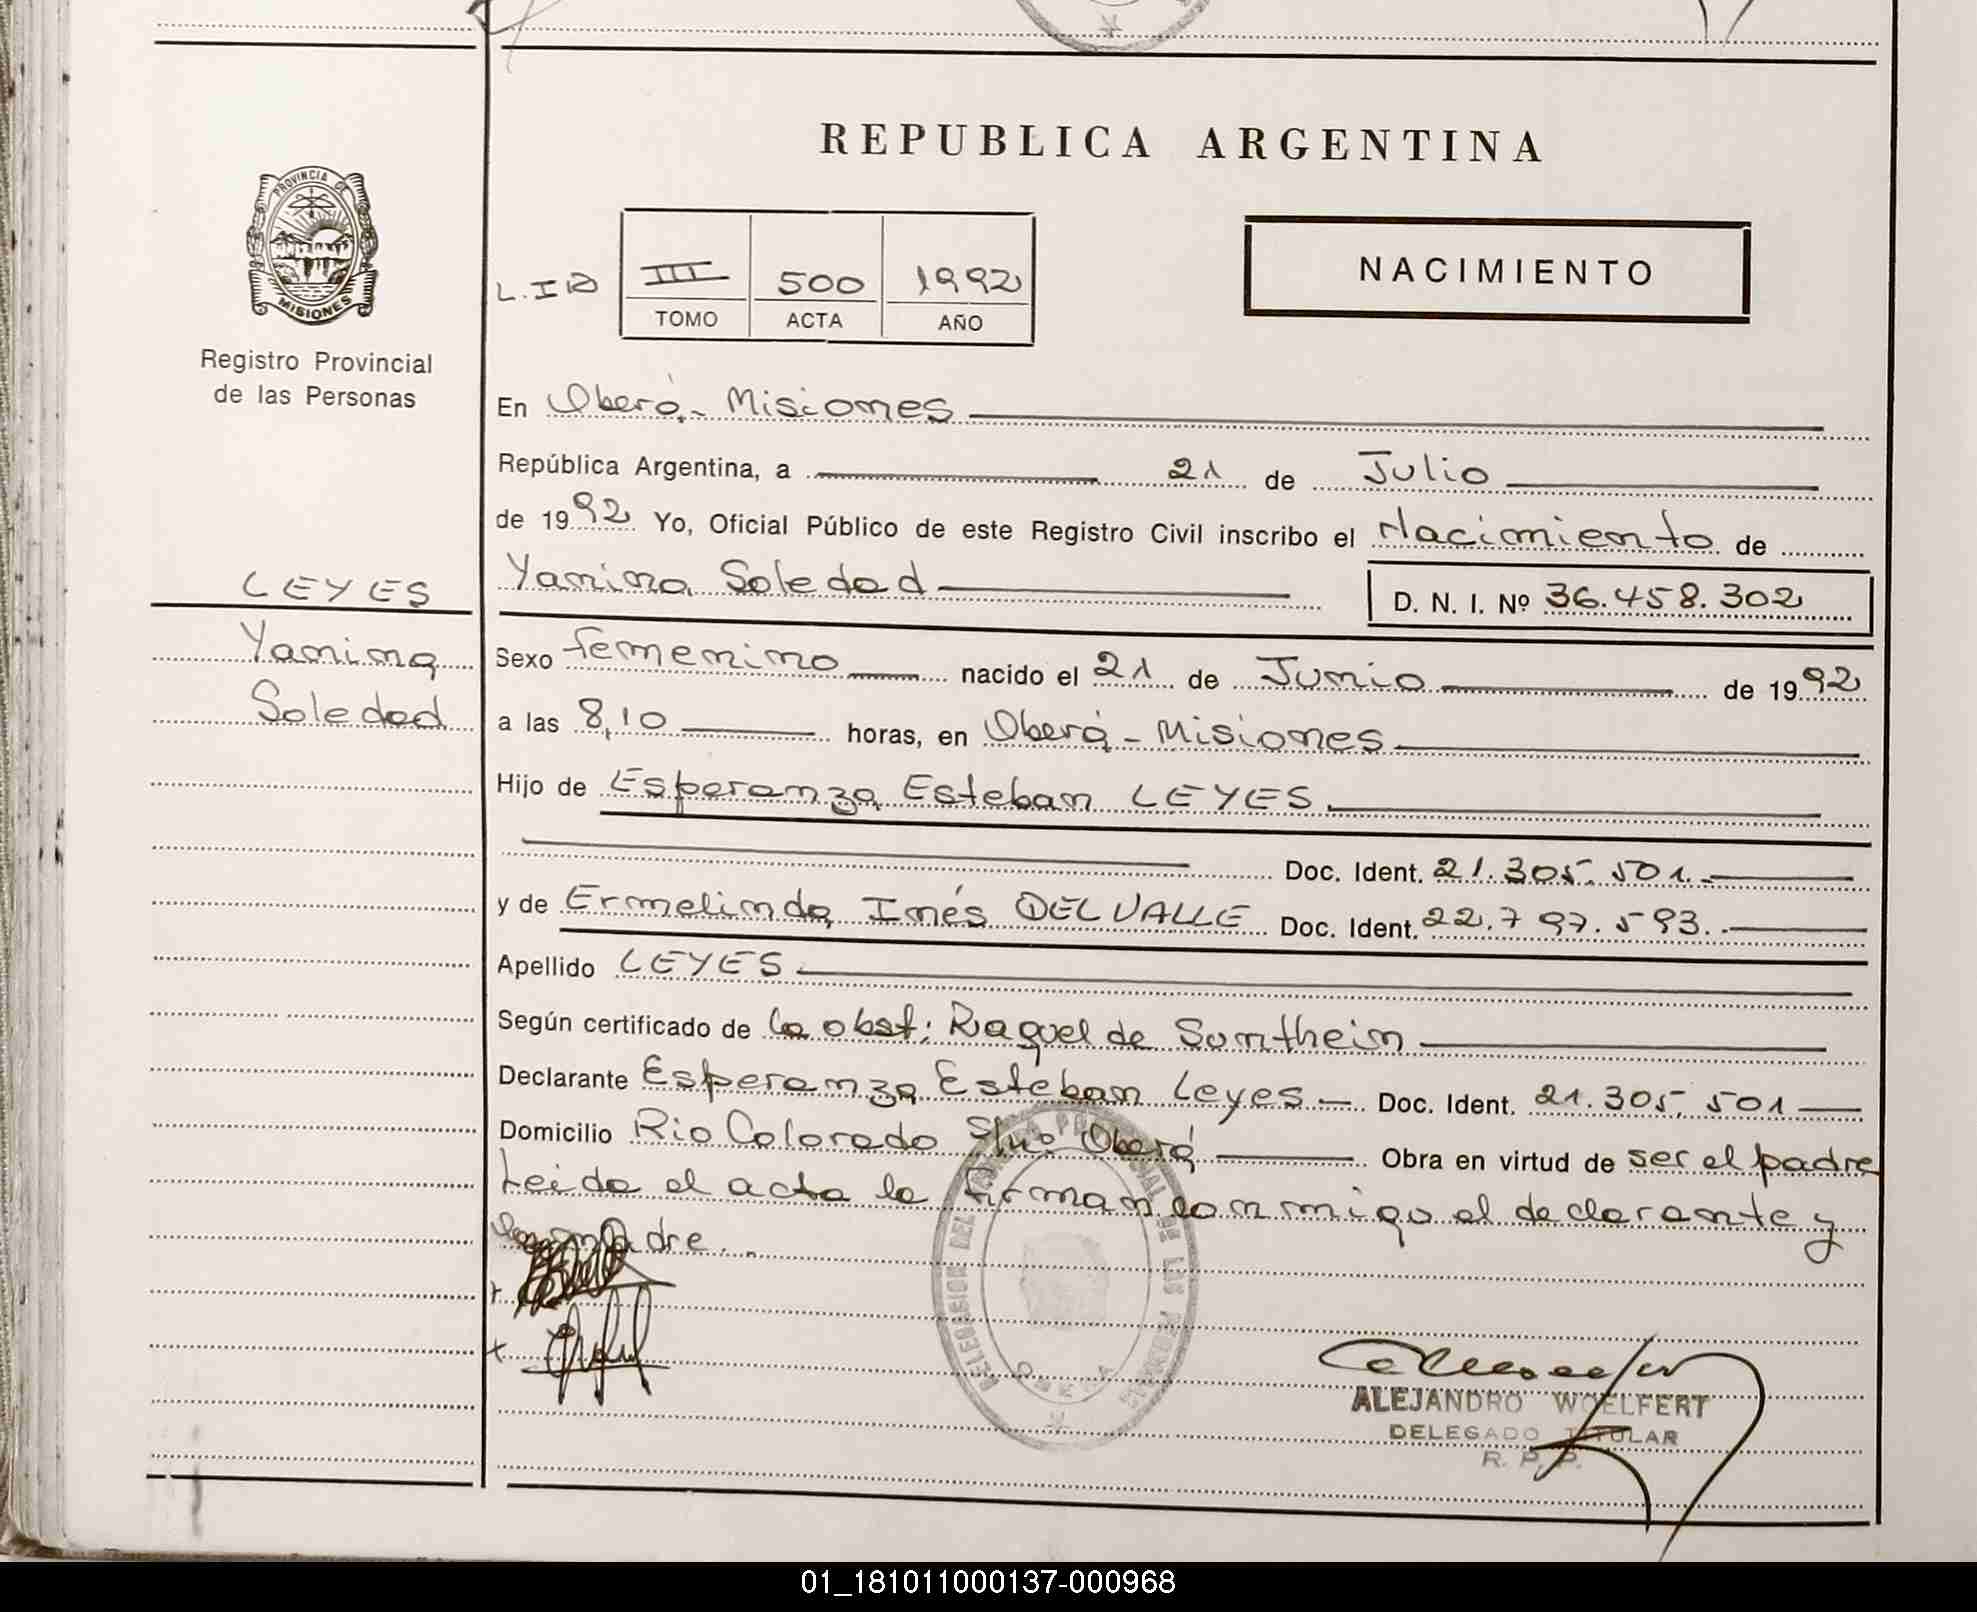 REPUBLICA ARGENTINA
PROVINCIA DE
MISIONES
Registro Provincial
de las Personas
III 500 1992
TOMO ACTA AÑO
NACIMIENTO
En Oberá.- Misiones
República Argentina, a 21 de Julio
de 1992 Yo, Oficial Público de este Registro Civil inscribo el Nacimiento de
LEYES
Yanina Soledad
D. N. I. Nº 36.458.302
Yanina
Soledad
Sexo femenino nacido el 21 de Junio de 1992
a las 8,10 horas, en Oberá - Misiones
Hijo de Esperanza Esteban LEYES
Doc. Ident. 21.305.501.
y de Ermelinda Inés DEL VALLE Doc. Ident. 22.797.593.
Apellido LEYES
Según certificado de la obst: Raquel de Sontheim
Declarante Esperanza Esteban Leyes Doc. Ident. 21.305.501
Domicilio Rio Colorado S/nº Oberá Obra en virtud de ser el padre
Leida el acta la firman conmigo el declarante y
madre..
DELEGACION DEL REGISTRO PROVINCIAL DE LAS PERSONAS
OBERA
ALEJANDRO WOELFERT
DELEGADO TITULAR
R. P. P.
01_181011000137-000968